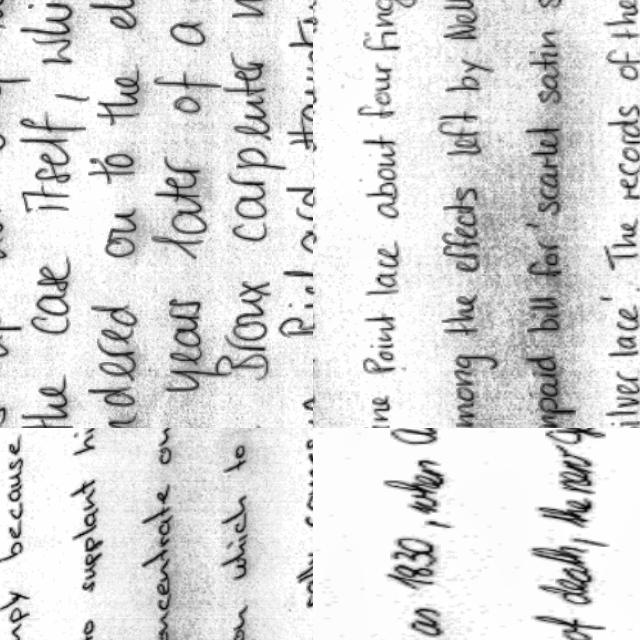 the case itself, whi
dered on to the el
years later of a
Bronx carpenter
ne Point lace about four fing
mong the effects left by Nell
npaid bill for 'scarlet satin s
ilver lace'. The records of the
mply because
supplant hi
oncentrate on
on which to
en 1830, when
f death, the new